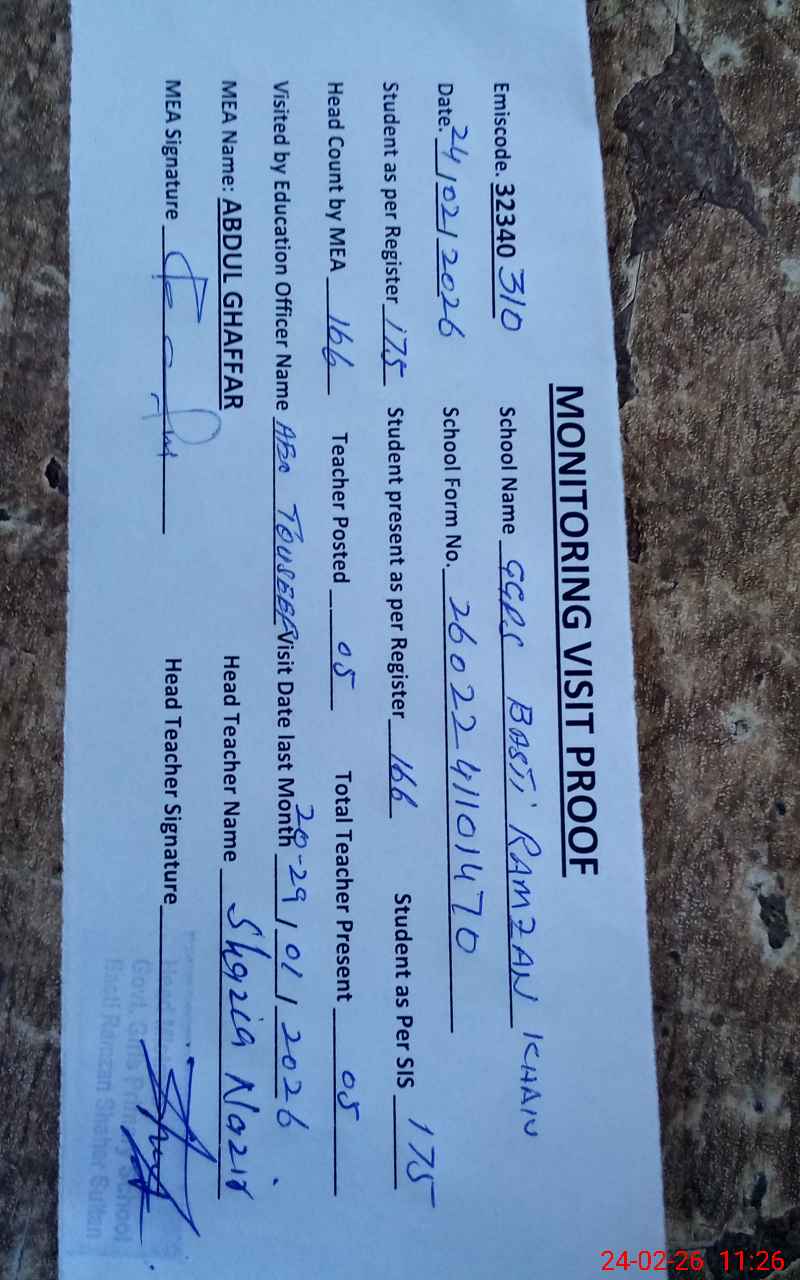 MONITORING VISIT PROOF
Emiscode. 32340 310 School Name GGPS BASTI RAMZAN KHAN
Date. 24/02/2026 School Form No. 2602241101470
Student as per Register 175 Student present as per Register 166 Student as Per SIS 175
Head Count by MEA 166 Teacher Posted 05 Total Teacher Present 05
Visited by Education Officer Name AEO TOUSEEF Visit Date last Month 20-29/01/2026
MEA Name: ABDUL GHAFFAR Head Teacher Name Shazia Nazir
MEA Signature Head Teacher Signature
Govt. Girls Primary School
Basti Ramzan Shaher Sultan
24-02-26 11:26